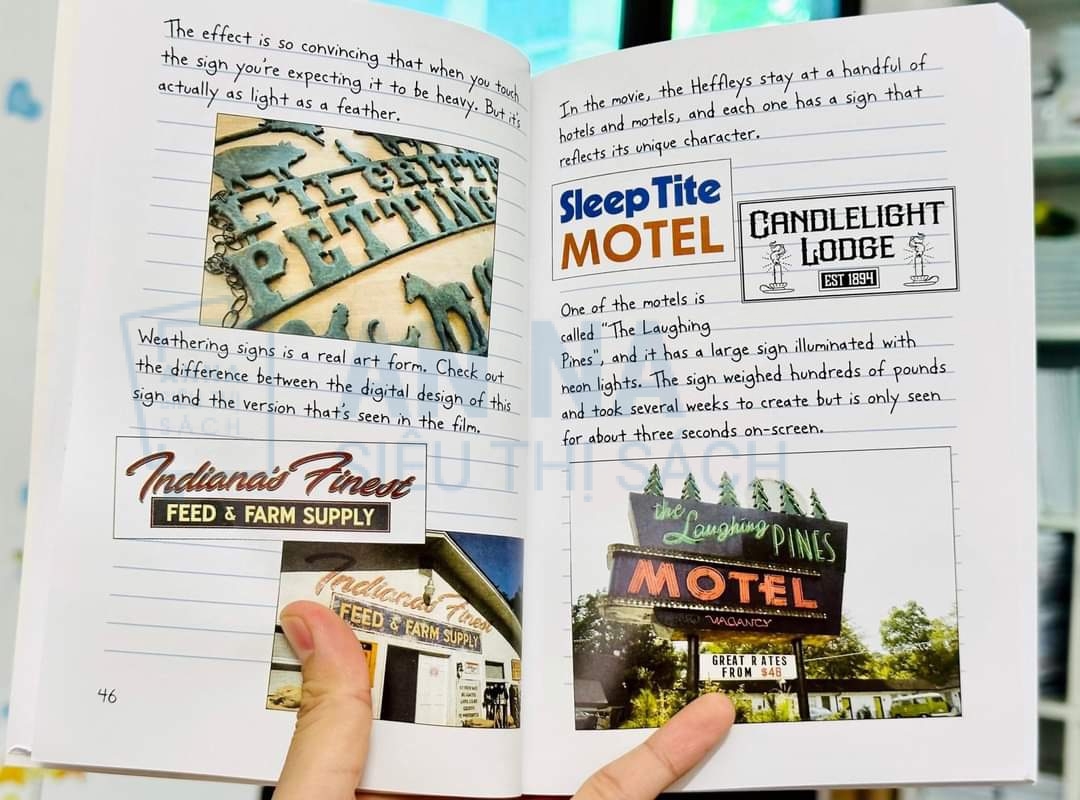 The effect is so convincing that when you touch
the sign you're expecting it to be heavy. But it's
actually as light as a feather.
PETTING
Weathering signs is a real art form. Check out
the difference between the digital design of this
sign and the version that's seen in the film.
Indiana's Finest
FEED & FARM SUPPLY
Indiana's Finest
FEED & FARM SUPPLY
46
In the movie, the Heffleys stay at a handful of
hotels and motels, and each one has a sign that
reflects its unique character.
Sleep Tite
MOTEL
CANDLELIGHT
LODGE
EST 1894
One of the motels is
called "The Laughing
Pines", and it has a large sign illuminated with
neon lights. The sign weighed hundreds of pounds
and took several weeks to create but is only seen
for about three seconds on-screen.
the Laughing PINES
MOTEL
VACANCY
GREAT RATES
FROM $48
AN NA
SIÊU THỊ SÁCH